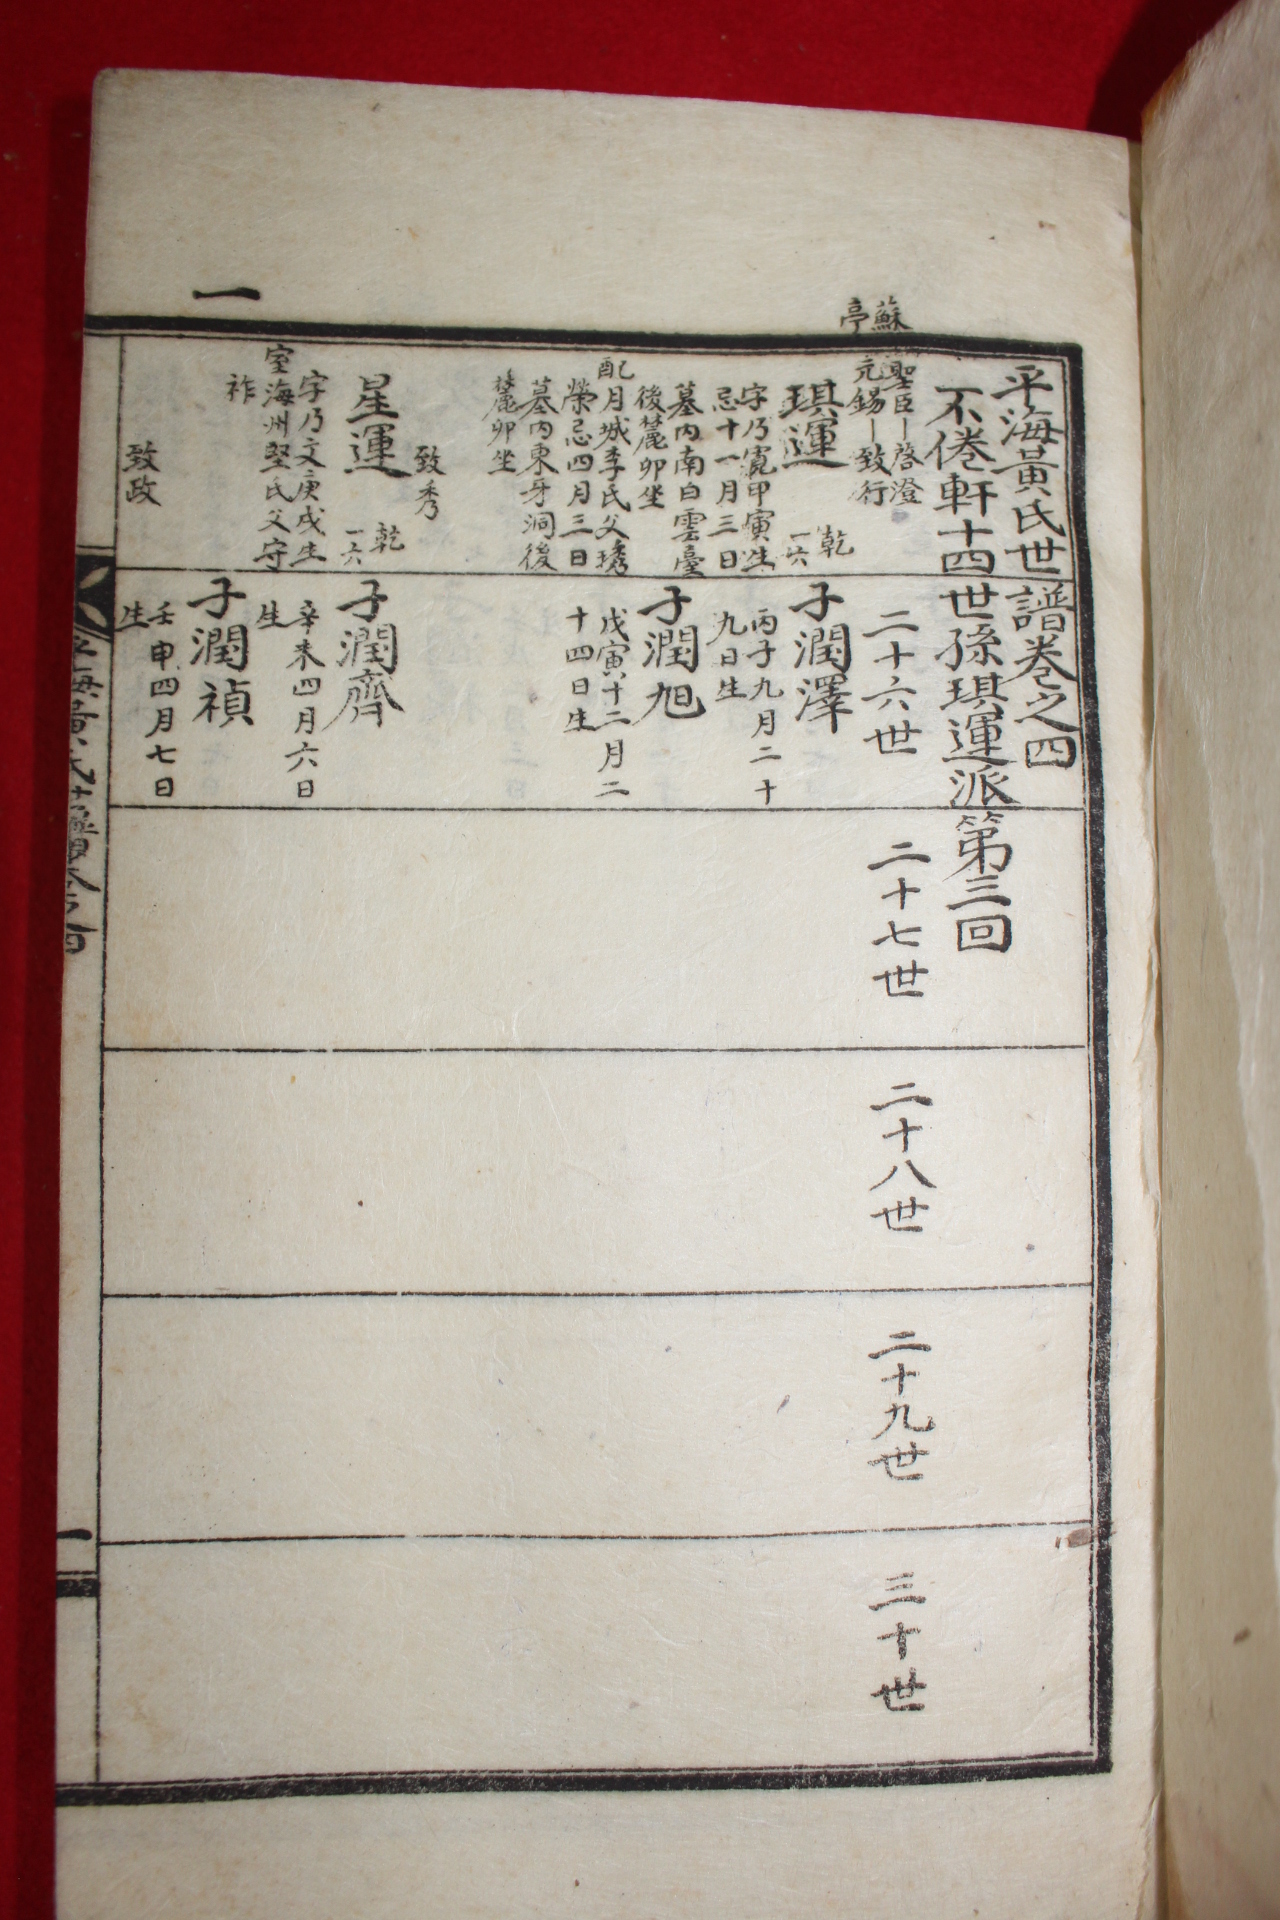 一
蘇亭
平海黃氏世譜卷之四
不倦軒十四世孫琪運派第三回
聖臣ー啓澄
元錫ー致行
琪運
乾
一六
字乃寬甲寅生
忌十一月三日
墓內南白雲臺
後麓卯坐
配月城李氏父璓
榮忌四月三日
墓內東牙洞後
麓卯坐
致秀
星運
乾
一六
字乃文庚戌生
室海州堅氏父守
祚
致政
二十六世
子潤澤
丙子九月二十
九日生
子潤旭
戊寅十二月二
十四日生
子潤齊
辛未四月六日
生
子潤禎
壬申四月七日
生
二十七世
二十八世
二十九世
三十世
一